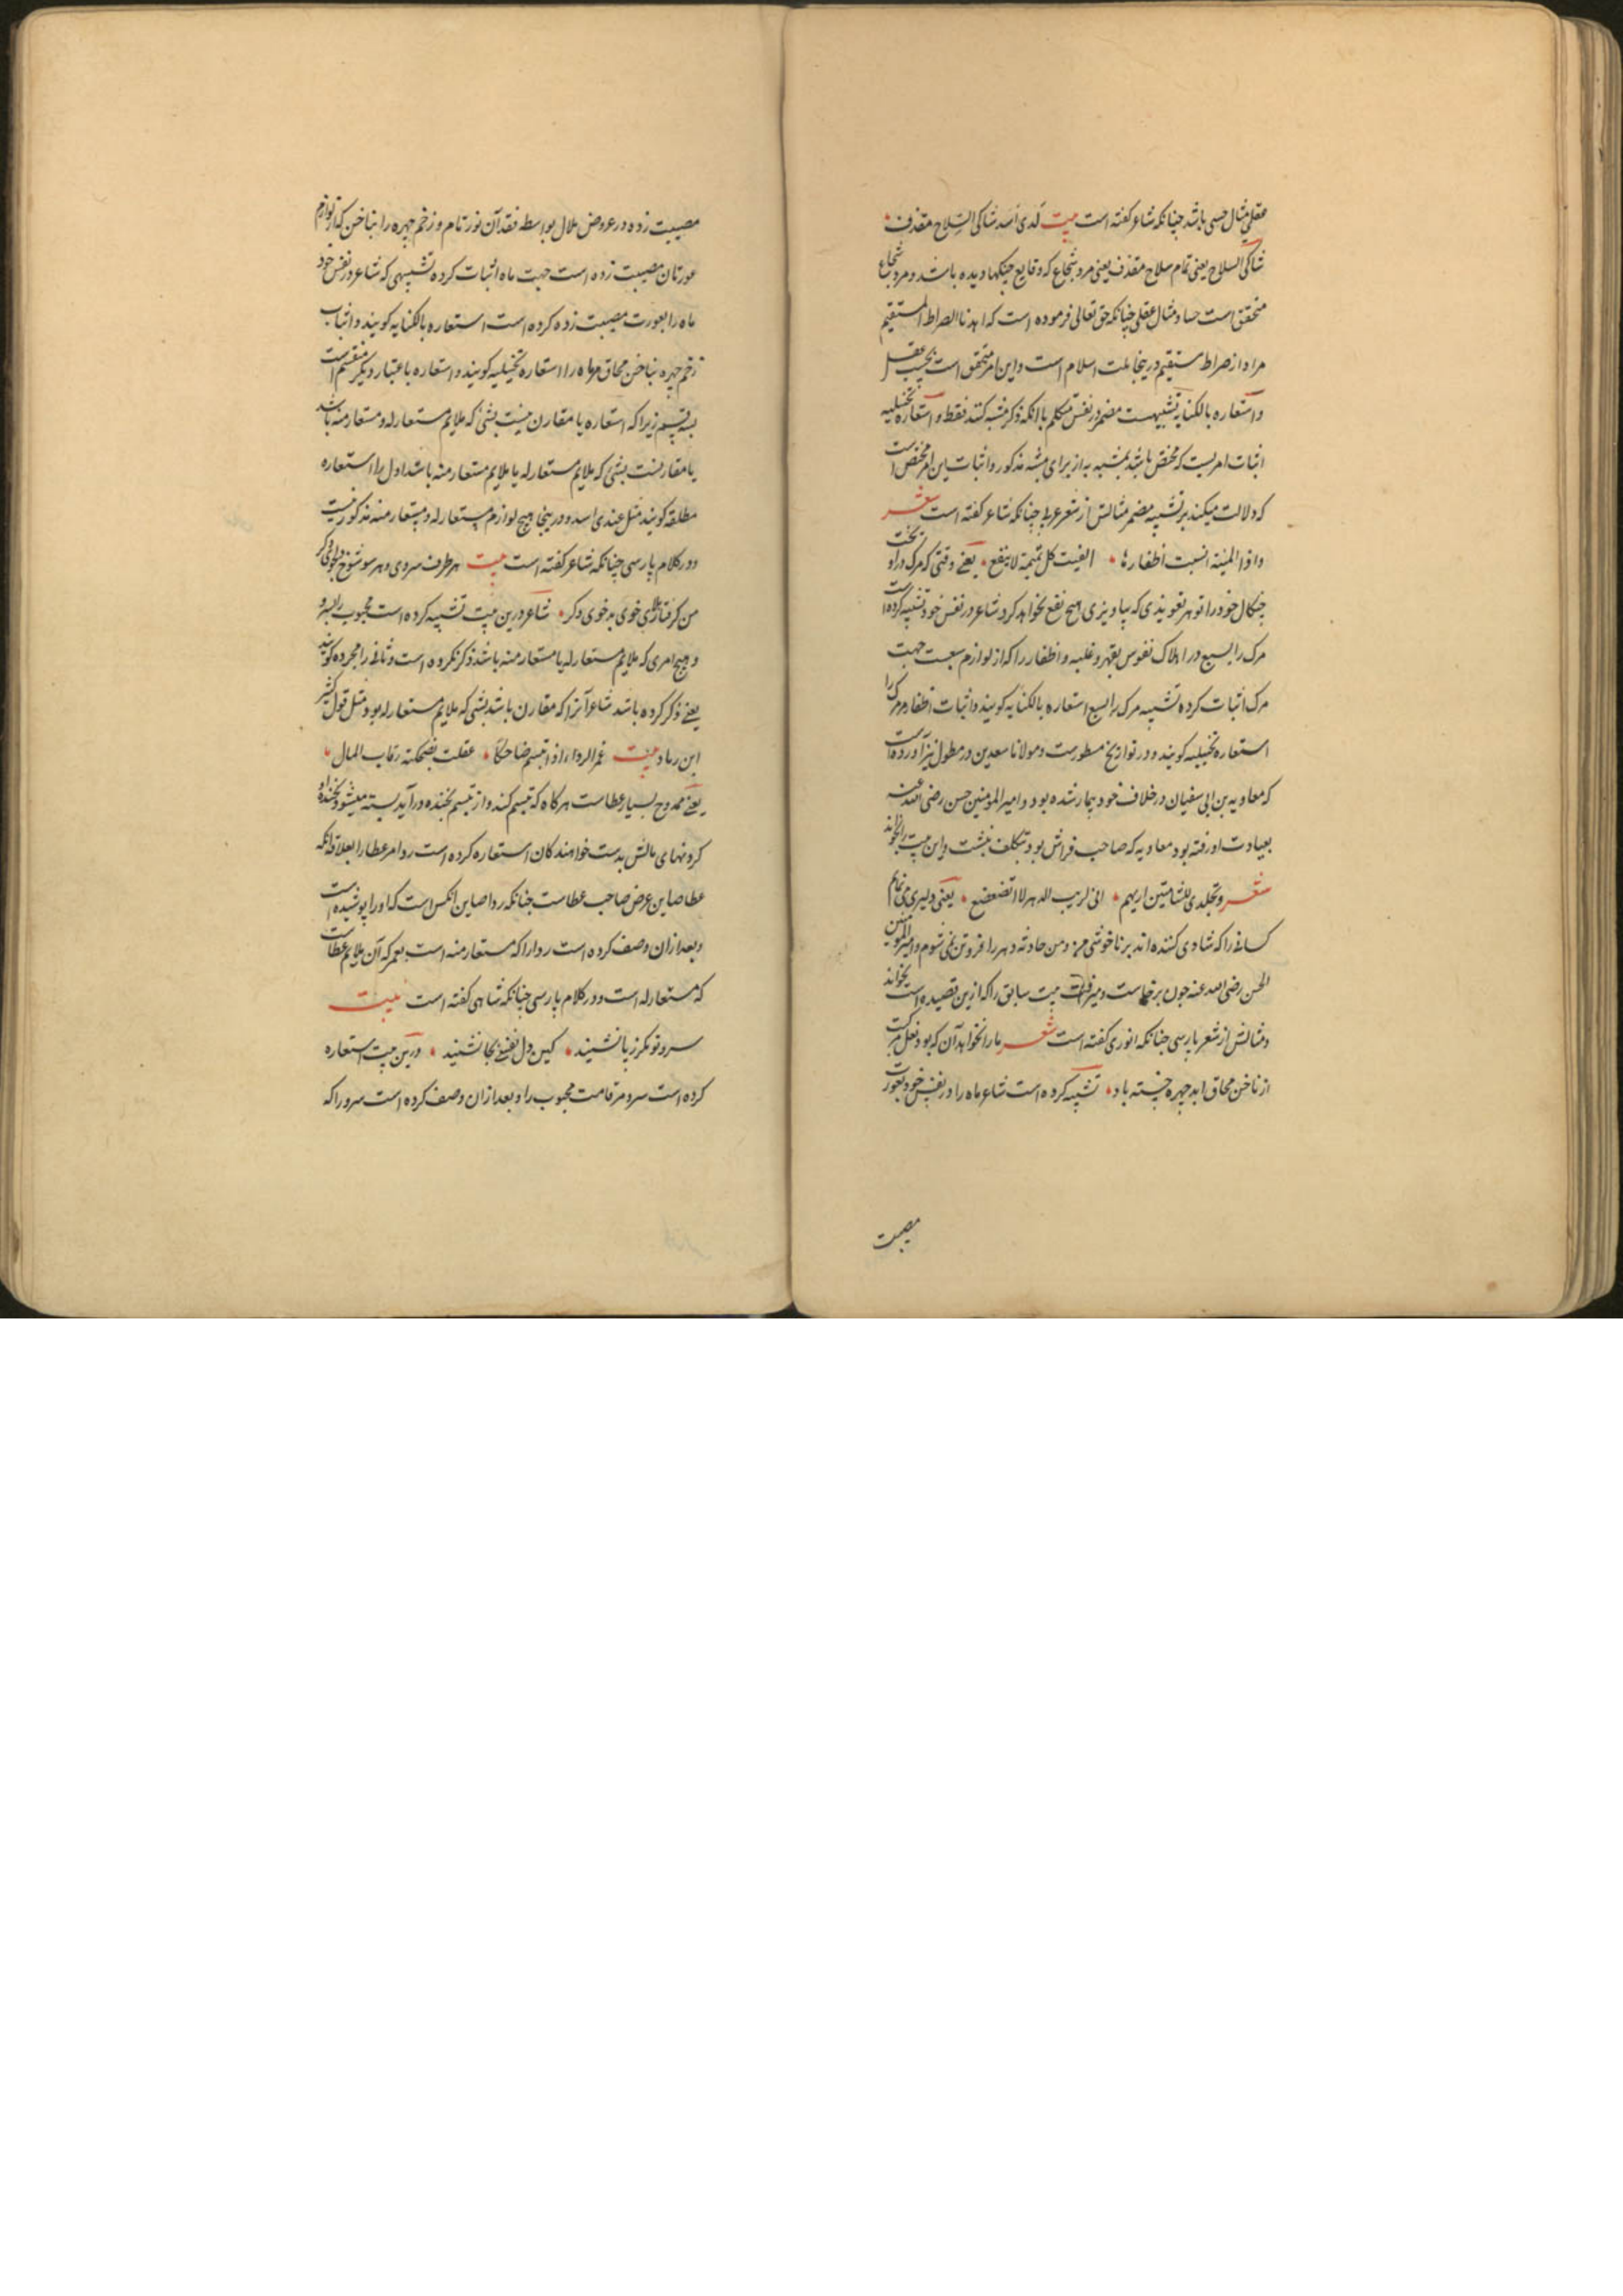 عقلی مثال حسی باشد چنانکه شاعر کفته است بیت لدی اسد شاکی السلاح مقذف
شاکی السلاح یعنی تمام سلاح مقذف یعنی مرد شجاع که وقایع جنکها دیده باشد و مرد شجاع
متحقق است حسا و مثال عقلی چنانکه حق تعالی فرموده است که اهدنا الصراط المستقیم
مراد از صراط مستقیم درینجا ملت اسلام است و این امر متحقق است بحسب عقل
و استعاره بالکنایه تشبیهست مضمر در نفس متکلم باانکه ذکر مشبه کنند فقط و استعاره تخییلیه
اثبات امریست که مختص باشد بمشبه به از برای مشبه مذکور و اثبات این امر مختص است
که دلالت میکند بر تشبیه مضمر مثالش از شعر عربی چنانکه شاعر کفته است شعر
واذا المنیة انشبت اظفارها الفیت کل تمیمة لا ینفع یعنی وقتی که مرک در آویخت
چنکال خود را تو هر تعویذی که بیاویزی هیچ نفع نخواهد کرد شاعر در نفس خود تشبیه کرده است
مرک را بسبع در اهلاک نفوس بقهر و غلبه و اظفار را که از لوازم سبعست جهت
مرک اثبات کرده تشبیه مرک را بسبع استعاره بالکنایه کویند و اثبات اظفار مر مرک را
استعاره تخییلیه کویند و در تواریخ مسطورست و مولانا سعدین در مطول نیز آورده است
که معاویه بن ابی سفیان در خلافت خود بیمار شده بود و امیر المومنین حسن رضی الله عنه
بعیادت او رفته بود معاویه که صاحب فراش بود بتکلف بنشست و این بیت را بخواند
شعر و تجلدی للشامتین اریهم انی لریب الدهر لا اتضعضع یعنی دلیری می نمایم
کسانی را که شادی کننده اند بر ناخوشی من و من حادثه دهر را فروتن نمی شوم و امیر المومنین
الحسن رضی الله عنه چون برخاست و میرفت بیت سابق را که ازین قصیده است بخواند
و مثالش از شعر پارسی چنانکه انوری کفته است شعر مارا نخواهد آن که بود نعل مرکبت
از ناخن محاق ابد چهره خسته باد تشبیه کرده است شاعر ماه را در نفس خود بعورت
مصیبت
مصیبت زده در عروض ملال بواسطه فقد آن نور تام و زخم چهره را بناخن که از لوازم
عورتان مصیبت زده است جهت ماه اثبات کرده تشبیهی که شاعر در نفس خود
ماه را بعورت مصیبت زده کرده است استعاره بالکنایه کویند و اثبات
زخم چهره بناخن محاق مر ماه را استعاره تخییلیه کویند و استعاره باعتبار دیکر منقسم است
بسه قسم زیرا که استعاره یا مقارن نیست بشئی که ملایم مستعار له و مستعار منه باشد
یا مقارنست بشئی که ملایم مستعار له یا ملایم مستعار منه باشد اول را استعاره
مطلقه کویند مثل عندی اسد و درینجا هیچ لوازم مستعار له و مستعار منه مذکور نیست
و در کلام پارسی چنانکه شاعر کفته است بیت هر طرف سروی و هر سو شوخ دلجوی دکر
من کرفتار خوی بد خوی دکر شاعر درین بیت تشبیه کرده است محبوب را بسرو
و هیچ امری که ملایم مستعار له یا مستعار منه باشد ذکر نکرده است و ثانی را مجرده کویند
یعنی ذکر کرده باشد شاعر آنرا که مقارن باشد بشئی که ملایم مستعار له بود مثل قول کثیر
ابن رماد بیت غمر الرداء اذا تبسم ضاحکا عقلت بضحکته رقاب المال
یعنی ممدوح بسیار عطاست هرکاه که تبسم کند و از تبسم بخنده در آید بسته میشود بخنده او
کردنهای مالش بدست خواهندکان استعاره کرده است ردا مر عطا را بعلاقه انکه
عطا صاین عرض صاحب عطاست چنانکه ردا صاین انکس است که او را پوشیده است
و بعد ازان وصف کرده است ردا را که مستعار منه است بغمر که آن ملایم عطاست
که مستعار له است و در کلام پارسی چنانکه شاهی کفته است بیت
سرو تو مکر ز پا نشیند کین دل نفسی بجا نشیند درین بیت استعاره
کرده است سرو مر قامت محبوب را و بعد ازان وصف کرده است سرو را که